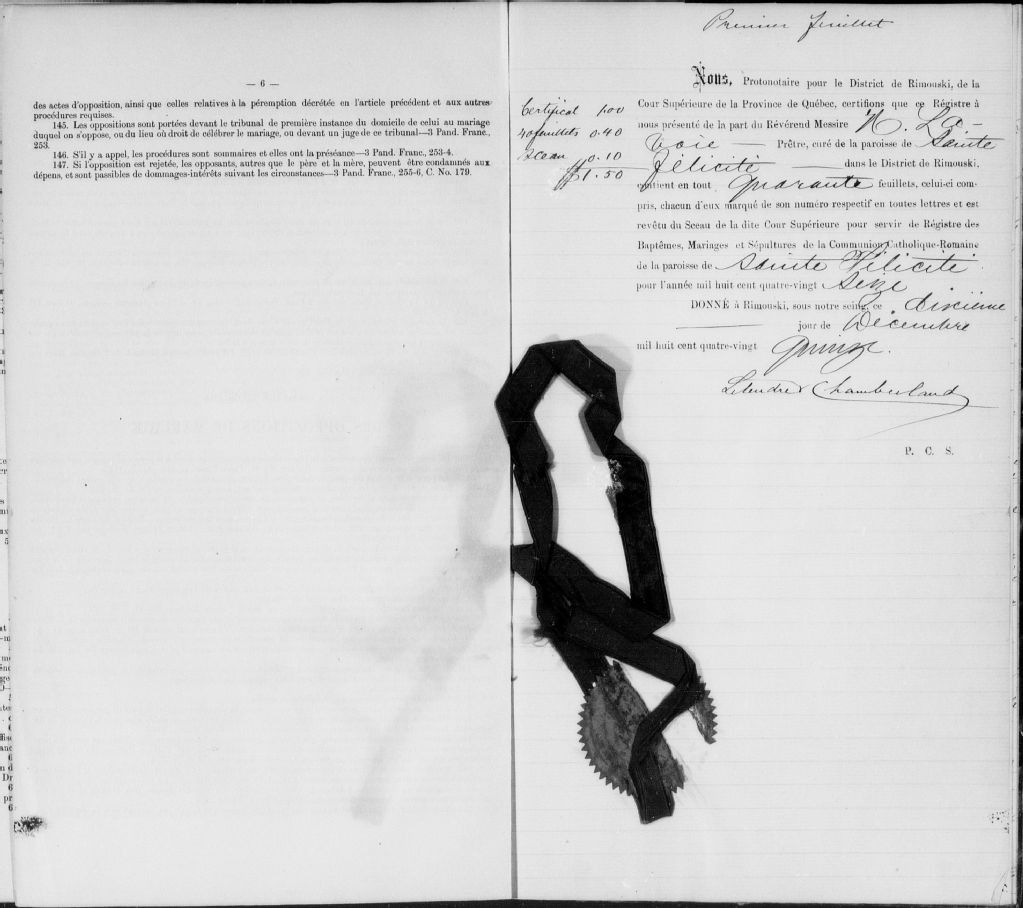 — 6 —
des actes d'opposition, ainsi que celles relatives à la péremption décrétée en l'article précédent et aux autres
procédures requises.
145. Les oppositions sont portées devant le tribunal de première instance du domicile de celui au mariage
duquel on s'oppose, ou du lieu où droit de célébrer le mariage, ou devant un juge de ce tribunal—3 Pand. Franc.,
253.
146. S'il y a appel, les procédures sont sommaires et elles ont la préséance—3 Pand. Franc., 253-4.
147. Si l'opposition est rejetée, les opposants, autres que le père et la mère, peuvent être condamnés aux
dépens, et sont passibles de dommages-intérêts suivant les circonstances—3 Pand. Franc., 255-6, C. No. 179.
Premier feuillet
Certificat 1.00
40 feuillets 0.40
Sceau 0.10
$1.50
Nous, Protonotaire pour le District de Rimouski, de la
Cour Supérieure de la Province de Québec, certifions que ce Régistre à
nous présenté de la part du Révérend Messire N. La-
voie — Prêtre, curé de la paroisse de Sainte
Félicité dans le District de Rimouski,
contient en tout quarante feuillets, celui-ci com-
pris, chacun d'eux marqué de son numéro respectif en toutes lettres et est
revêtu du Sceau de la dite Cour Supérieure pour servir de Régistre des
Baptêmes, Mariages et Sépultures de la Communion Catholique-Romaine
de la paroisse de Sainte Félicité
pour l'année mil huit cent quatre-vingt Seize
DONNÉ à Rimouski, sous notre seing, ce dixième
jour de Décembre
mil huit cent quatre-vingt quinze.
Letendre & Chamberland
P. C. S.